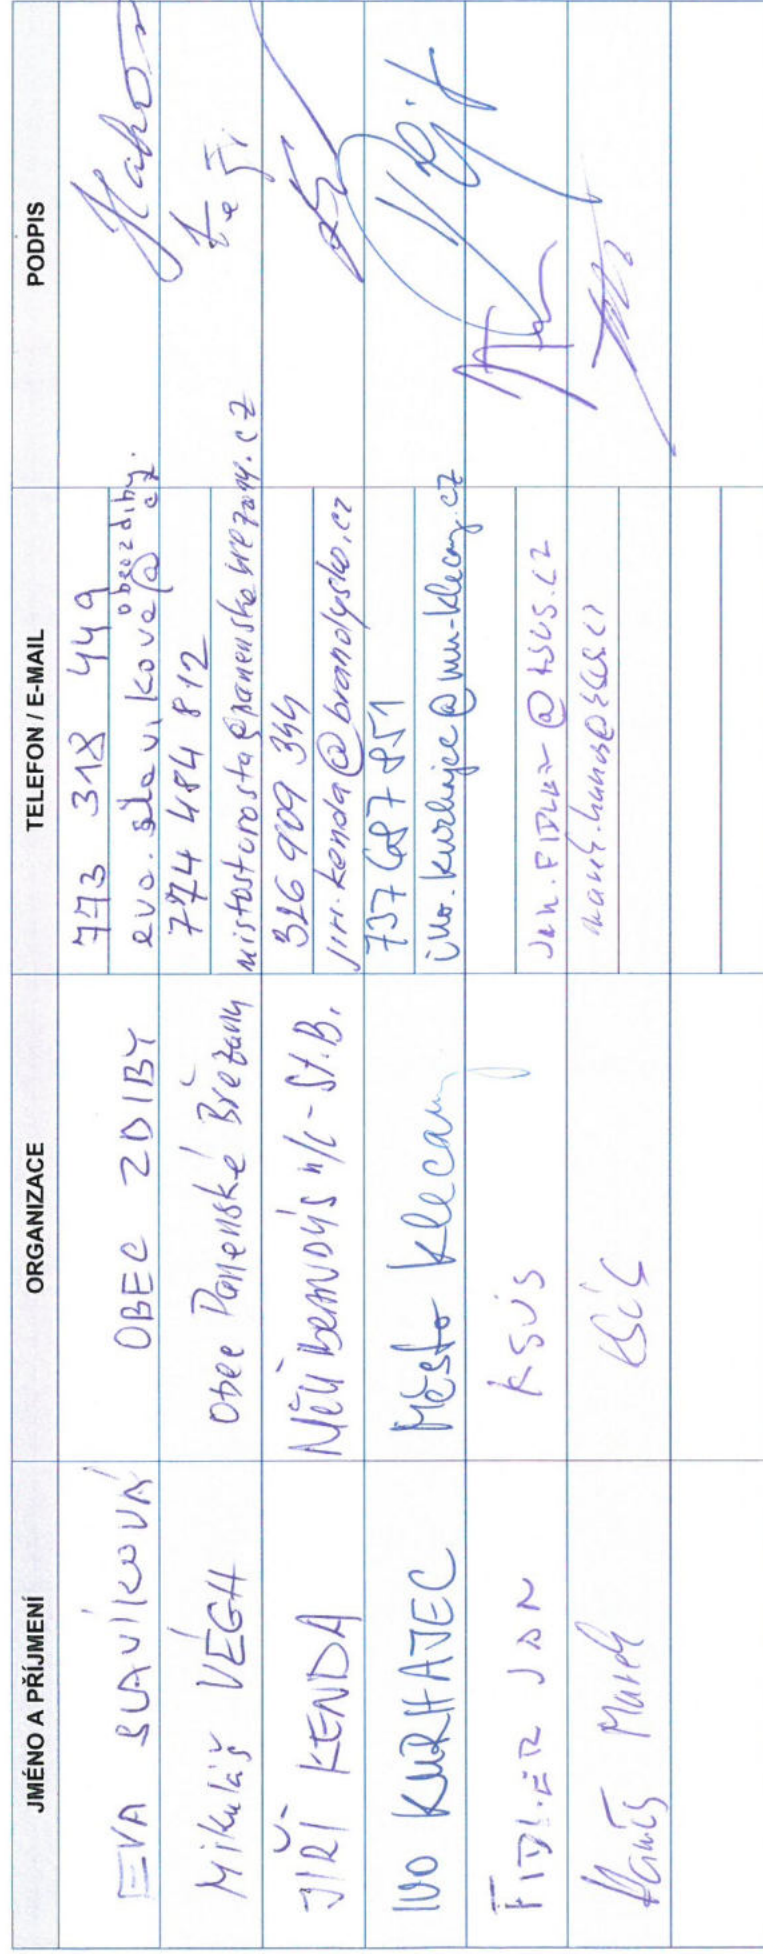 JMÉNO A PŘÍJMENÍ ORGANIZACE TELEFON / E-MAIL PODPIS
EVA SLAVÍKOVÁ OBEC ZDIBY 773 318 449
eva.slavikova@obeczdiby.cz
Mikuláš VÉGH Obec Panenské Břežany 774 484 812
mistostarosta@panenskebrezany.cz
JIŘÍ KENDA MěÚ BRANDÝS n/L - St.B. 326 909 344
jiri.kenda@brandysko.cz
IVO KURHAJEC Město Klecany 737 687 851
ivo.kurhajec@mu-klecany.cz
FIDLER JAN KSÚS
Jan.FIDLER@KSUS.CZ
Marek